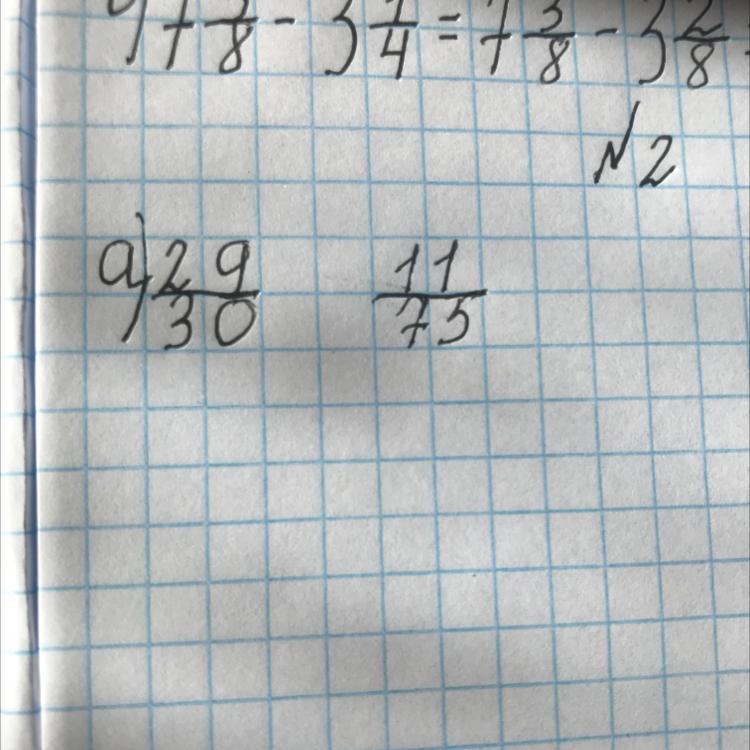 7 3/8 - 3 1/4 = 7 3/8 - 3 2/8
№2
а) 29/30 11/75